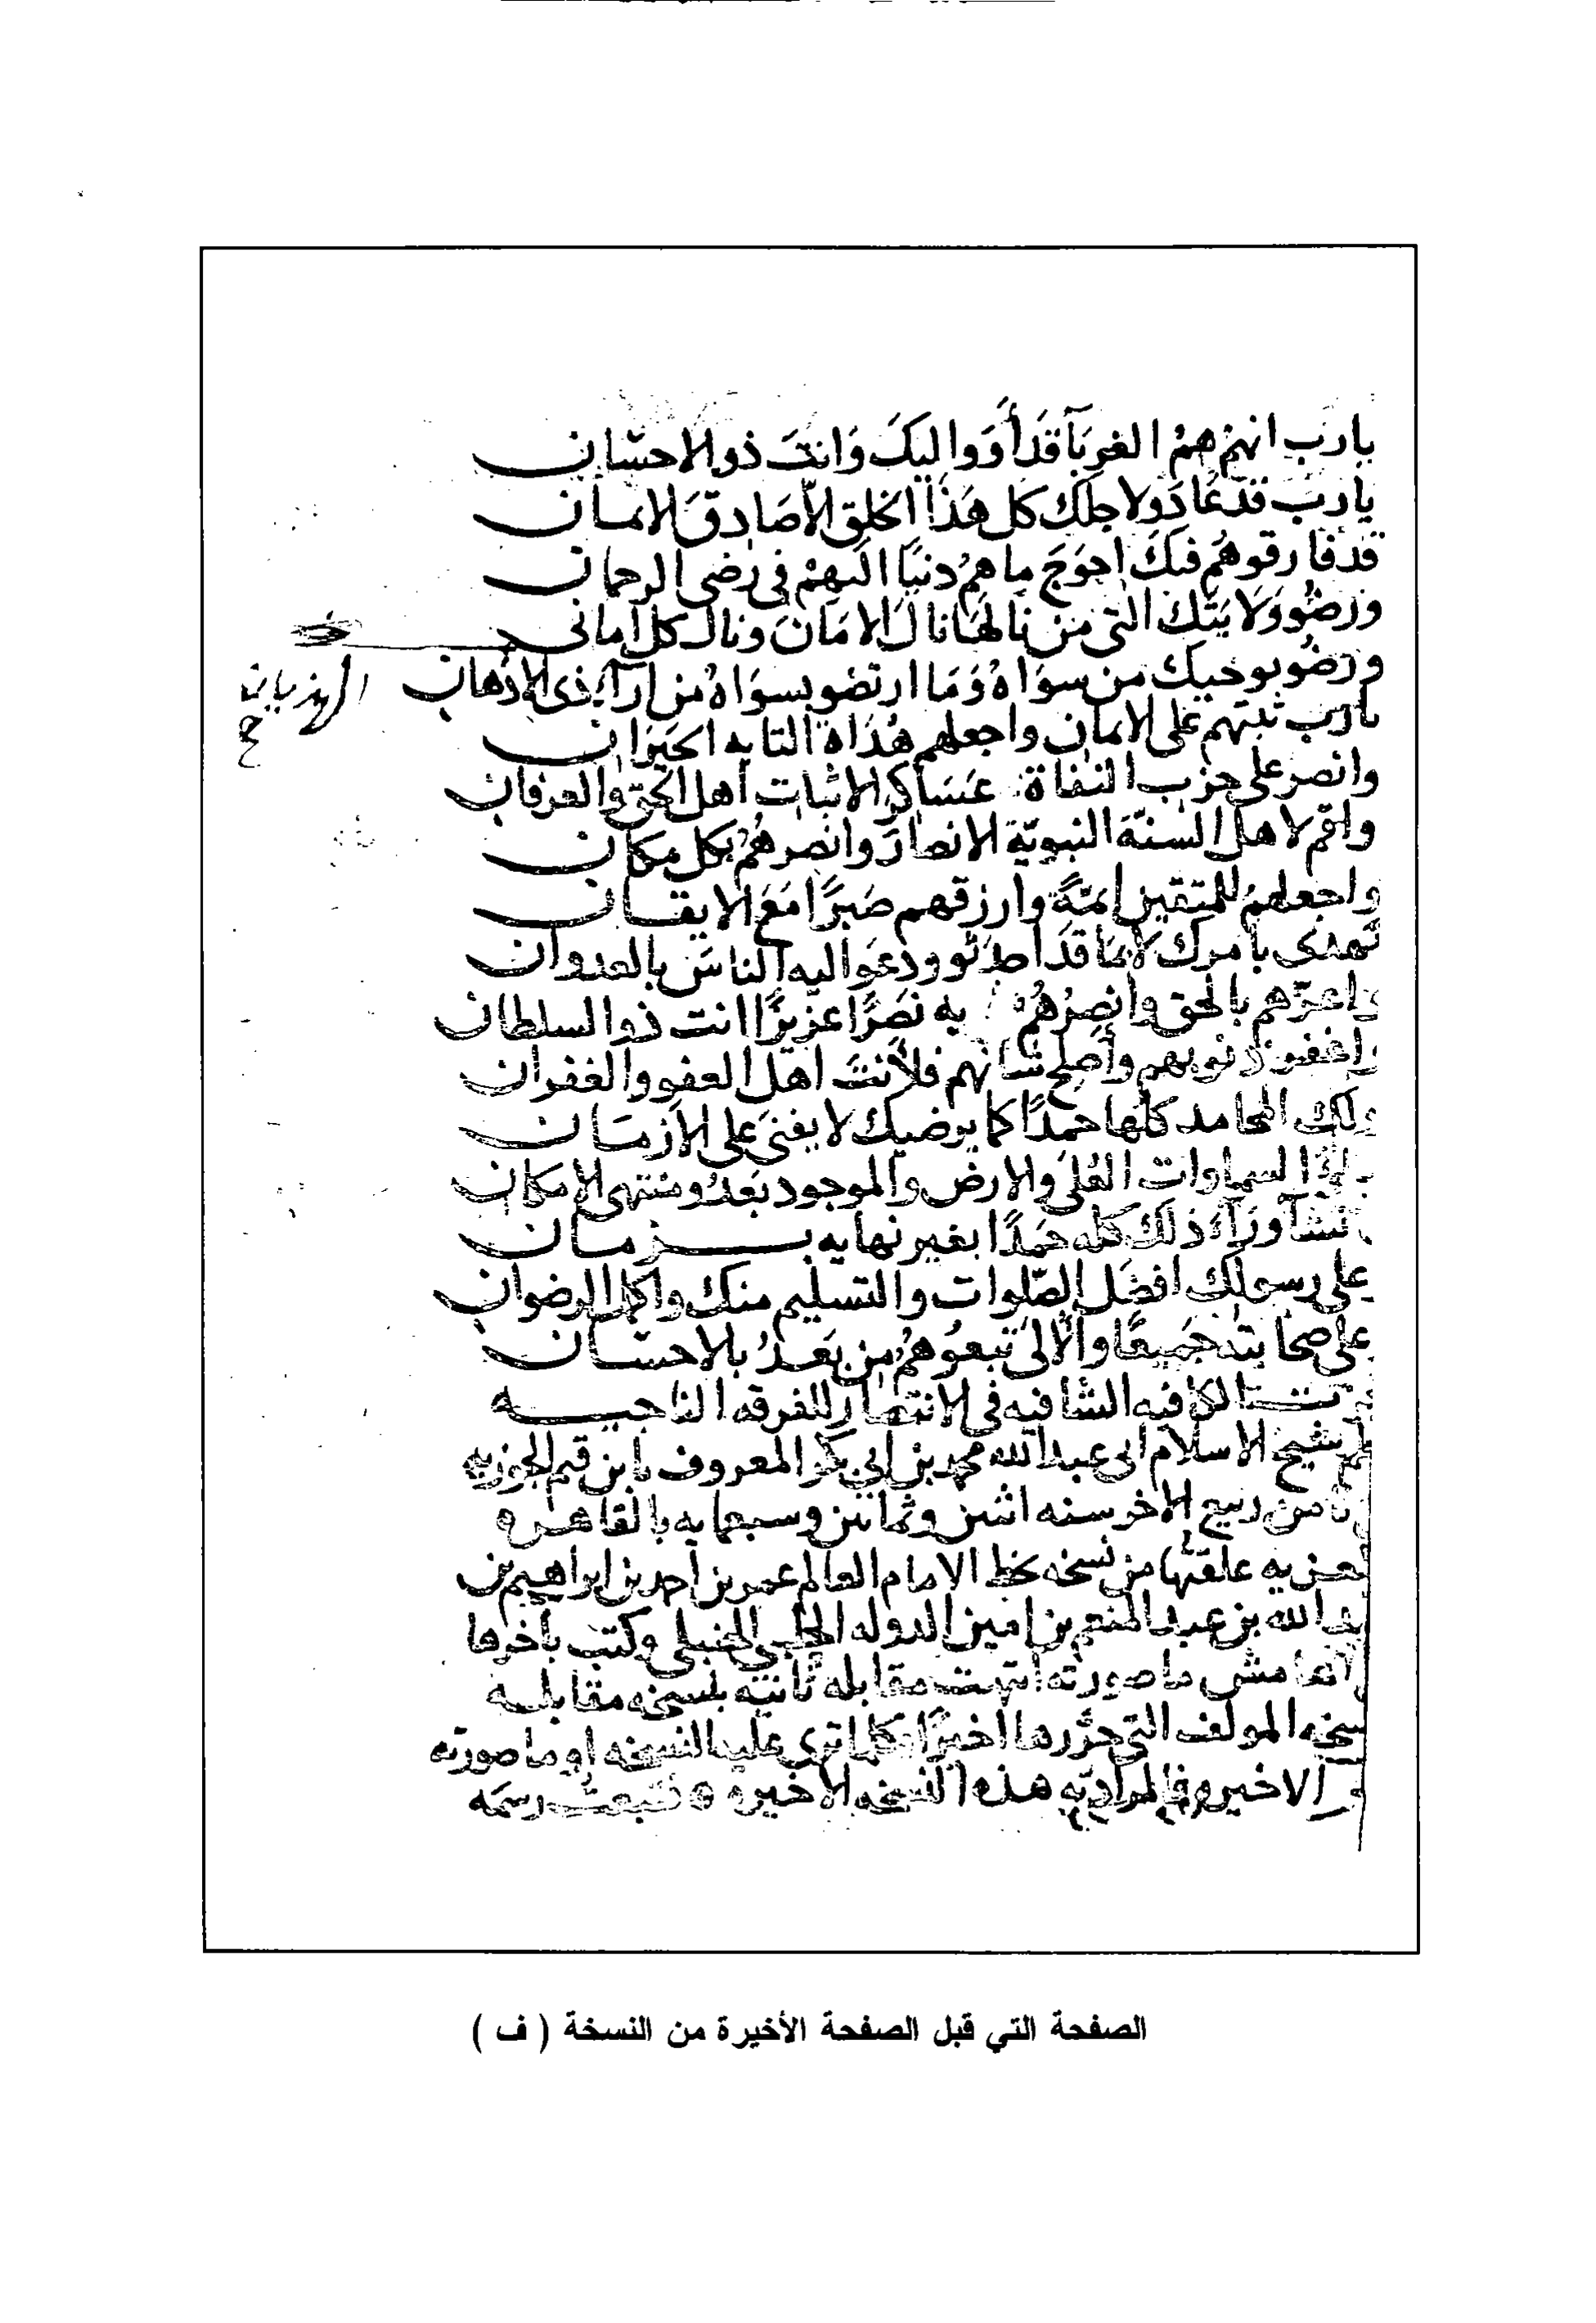 يا رب انهمْ همُ الغربآ قدَ أوَوا اليكَ وَانتَ ذو الاحسَان
يا رب قد عَادَو لاجلك كل هَذا الخلق الّا صَادقَ الايمان
قد فارقوهُم فيكَ احوَجَ ما همُ دنيًا اليهمْ في رضى الرحمان
ورضُو وَلايتك التي من نالهَا نالَ الامَانَ ونال كل اماني
ورضُو بوحيك من سوَاهُ وَمَا ارتضو بسوَاهُ من ارآءِ ذي الاذهان
الهذيان
خ
يا رب ثبتهم على الايمان واجعلهم هُدَاة التايه الحَيرَان
وانصر على حزب النفاة عَسَاكر الاثبات اهل الحق والعرفان
واقم لاهل السنّة النبويّة الانصارَ وانصرهُم بكل مكان
واجعلهمُ للمتقين ايمّةً وارزقهم صَبرًا مَعَ الايقان
تهدى بامرك لا بمَا قد احدَثو ودعَوا اليه الناسَ بالعدوان
واعزّهم بالحق وانصرُهُم به نصَرًا عزيزًا انت ذو السلطان
واغفر ذنوبهم وأصلح شانهم فلأنتَ اهل العفو والغفران
ولك المحامد كلها حمدًا كما يرضيك لا يفنى على الازمَان
السماوات العُلى والارض والموجود بَعدُ ومنتهى الامكان
تشآ ورَآءَ ذلك كله حَمدًا بغير نهايه بزمان
على رسولك افضَل الصّلوات والتسليم منك واكمل الرضوان
على صحابته جَميعًا والأُلى تبعوُهُم من بَعدُ بالاحسَان
الكافيه الشافيه في الانتصار للفرقه الناجيه
شيخ الاسلام ابي عبد الله محمد بن ابي بكر المعروف بابن قيم الجوزيه
ثامن ربيع الاخر سنه اثنين وثمانين وسبعمايه بالقاهره
علقتها من نسخه بخط الامام العالم عمر بن احمد بن ابراهيم بن
الله بن عبد المنعم بن امين الدوله الحلبي الحنبلي وكتب بآخرها
ما صورته انتهت مقابله ثانيه بنسخه مقابله
المولف التي حرّرها اخيرًا وكلما ترى عليه النسخه او ما صورته
الاخيره فالمراد به هذه النسخه الاخيره فتبعت رسمَه
الصفحة التي قبل الصفحة الأخيرة من النسخة ( ف )